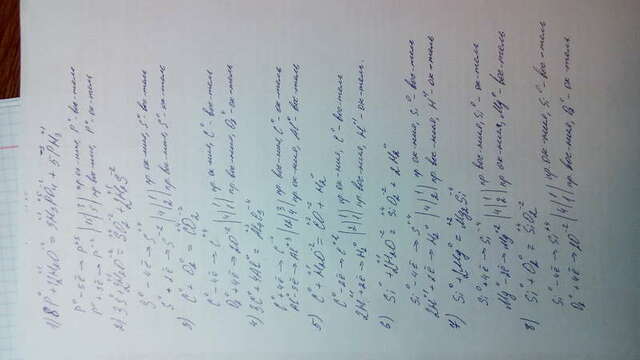 1) 8P + 12H₂O = 3H₃PO₄ + 5PH₃
P⁰ - 5ē → P⁺⁵ пр ок-ния, P⁰ - вос-тель
P⁰ + 3ē → P⁻³ пр вос-ния, P⁰ - ок-тель
2) 3S + 2H₂O = SO₂ + 2H₂S
S⁰ - 4ē → S⁺⁴ |4|1| пр ок-ния, S⁰ - вос-тель
S⁰ + 2ē → S⁻² |2| пр вос-ния, S⁰ - ок-тель
3) C + O₂ = CO₂
C⁰ - 4ē → C⁺⁴ пр ок-ния, C⁰ - вос-тель
O₂ + 4ē → 2O⁻² |4|1| пр вос-ния, O₂⁰ - ок-тель
4) 3C + 4Al = Al₄C₃
C⁰ + 4ē → C⁻⁴ |3| пр вос-ния, C⁰ - ок-тель
Al⁰ - 3ē → Al⁺³ |12|4| пр ок-ния, Al⁰ - вос-тель
5) C + H₂O = CO + H₂
C⁰ - 2ē → C⁺² |2|1| пр ок-ния, C⁰ - вос-тель
2H + 2ē → H₂⁰ |2|1| пр вос-ния, H⁺ - ок-тель
6) Si + 2H₂O = SiO₂ + 2H₂
Si⁰ - 4ē → Si⁺⁴ |4|1| пр ок-ния, Si⁰ - вос-тель
2H⁺ + 2ē → H₂⁰ |2| пр вос-ния, H⁺ - ок-тель
7) Si + 2Mg = Mg₂Si
Si⁰ + 4ē → Si⁻⁴ |4|1| пр вос-ния, Si⁰ - ок-тель
Mg⁰ - 2ē → Mg⁺² |2| пр ок-ния, Mg⁰ - вос-тель
8) Si + O₂ = SiO₂
Si⁰ - 4ē → Si⁺⁴ |4|1| пр ок-ния, Si⁰ - вос-тель
O₂⁰ + 4ē → 2O⁻² |4|1| пр вос-ния, O₂⁰ - ок-тель